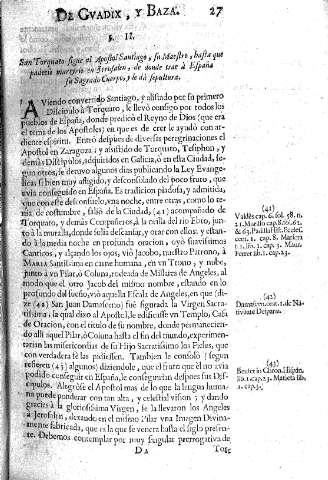 DE GVADIX, Y BAZA. 27
§. II.
San Torquato sigue al Apostol Santiago, su Maestro, hasta que
padeciò martyrio en Jerusalen, de donde trae à España
su Sagrado Cuerpo, y le dà sepultura.
AViendo convertido Santiago, y alistado por su primero
Discipulo à Torquato, se llevò consigo por todos los
pueblos de España, donde predicò el Reyno de Dios (que era
el tema de los Apostoles) en que es de creer le ayudò con ar-
diente espiritu. Entrò despues de diversas peregrinaciones el
Apostol en Zaragoza, y assistido de Torquato, Tesiphon, y
demàs Discipulos, adquiridos en Galicia, ò en esta Ciudad, se-
gun otros, se detuvo algunos dias publicando la Ley Evange-
lica; si bien muy afligido, y desconsolado del poco fruto, que
avia conseguido en España. Es tradicion piadosa, y admitida,
que con este desconsuelo, una noche, entre otras, como lo te-
nia de costumbre, saliò de la Ciudad, (41) acompañado de
Torquato, y demàs Discipulos, cerca de la rivera del rio Ebro, jun-
to à la muralla, donde solia descansar, y orar con ellos; y estan-
do à la media noche en profunda oracion, oyò suavissimos
Canticos, y alçando los ojos, viò Jacobo, nuestro Patrono, à
MARIA Santissima en carne humana, en un Trono, y sobre,
junto à un Pilar, ò Coluna, rodeada de Millares de Angeles, al
modo que el otro Jacob del mismo nombre, estando en lo
profundo del sueño, viò aquella Escala de Angeles, en que (di-
ze (42) San Juan Damasceno) fue significada la Virgen Sacra-
tissima, la qual diso al Apostol, le edificasse un Templo, Casa
de Oracion, con el titulo de su nombre, donde permanecien-
do alli aquel Pilar, ò Coluna hasta el fin del mundo, experimen-
tarian las misericordias de su Hijo Sacratissimo los Fieles, que
con verdadera fè las pidiessen. Tambien le consolò (segun
refieren (43) algunos) diziendole, que el fruto que el no avia
podido conseguir en España, le conseguirian despues sus Dis-
cipulos. Alegròse el Apostol mas de lo que la lengua huma-
na puede ponderar con tan alta, y celestial vision; y dando
gracias à la gloriosissima Virgen, se la llevaron los Angeles
à Jerusalen, dexando en el mismo Pilar una Imagen Divina-
mente fabricada, que es la que se venera hasta el siglo presen-
te. Debemos contemplar por muy singular prerrogativa de
D 2 Tor-
(41)
Valdès cap. 6. fol. 58. n.
(42)
Damascen.
(43)
Beuter in Chron. Hispan.
lib. 1 cap. 23.